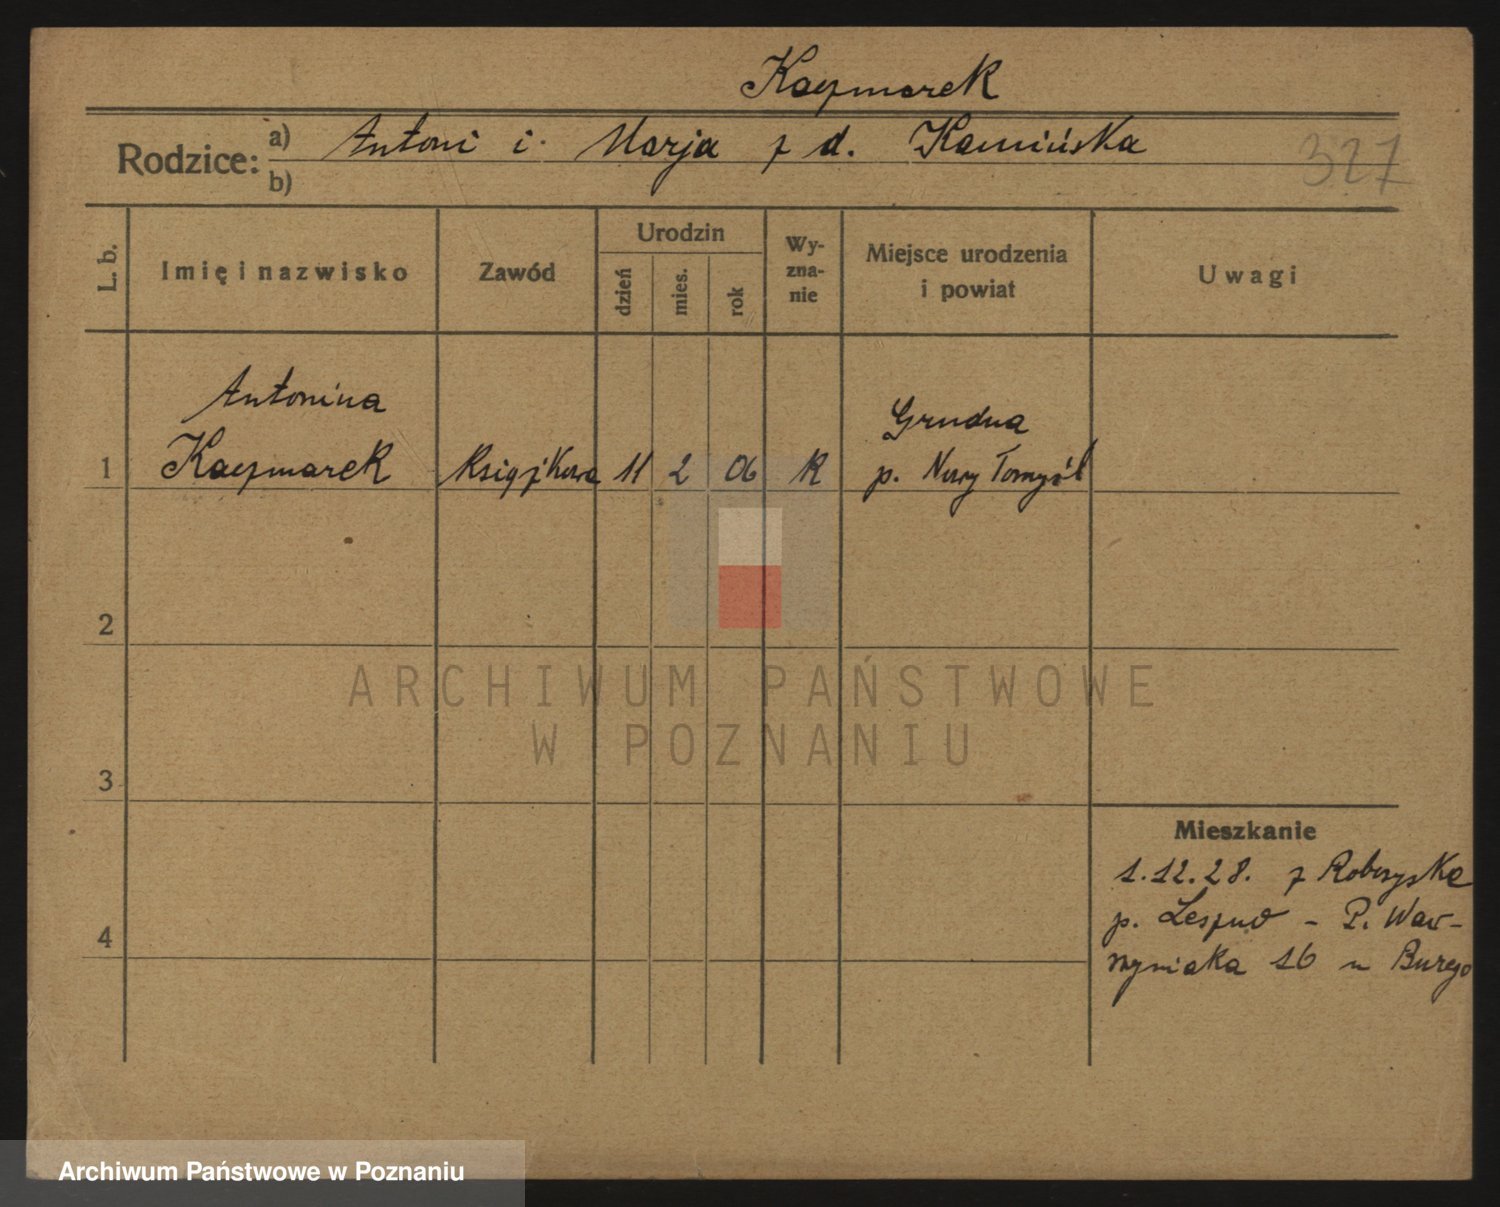 Kaczmarek
Rodzice: a) Antoni i Marja z d. Kamińska
b)
327
L. b.
Imię i nazwisko
Zawód
Urodzin
dzień
mies.
rok
Wy-
zna-
nie
Miejsce urodzenia
i powiat
Uwagi
Antonina
Grudna
1 Kaczmarek Książkowa 11 2 06 R p. Nowy Tomyśl
2
3
4
Mieszkanie
1.12.28. z
p. Leszno - P. Waw-
rzyniaka 16 u
ARCHIWUM PAŃSTWOWE
W POZNANIU
Archiwum Państwowe w Poznaniu